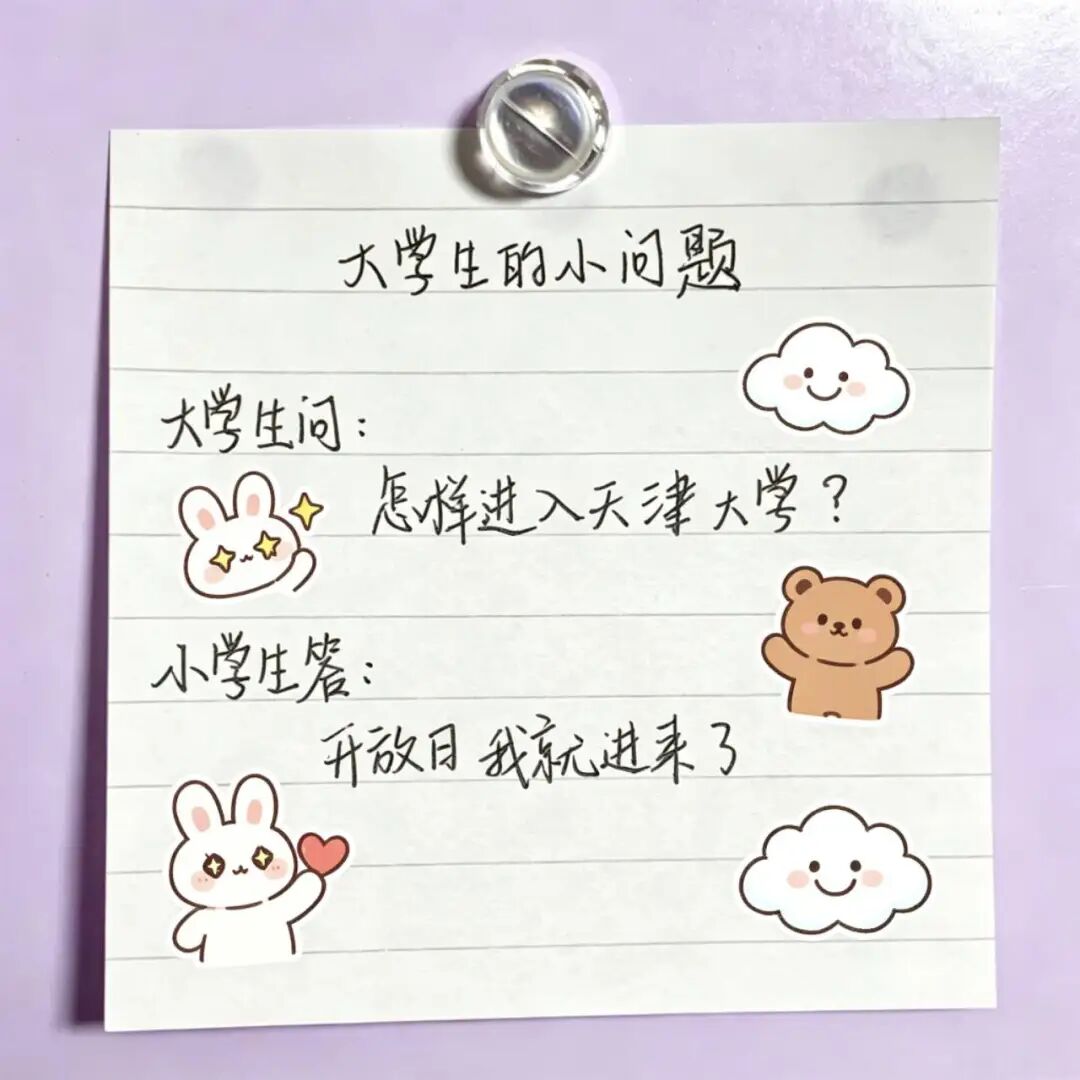 大学生的小问题
大学生问：
怎样进入天津大学？
小学生答：
开放日我就进来了